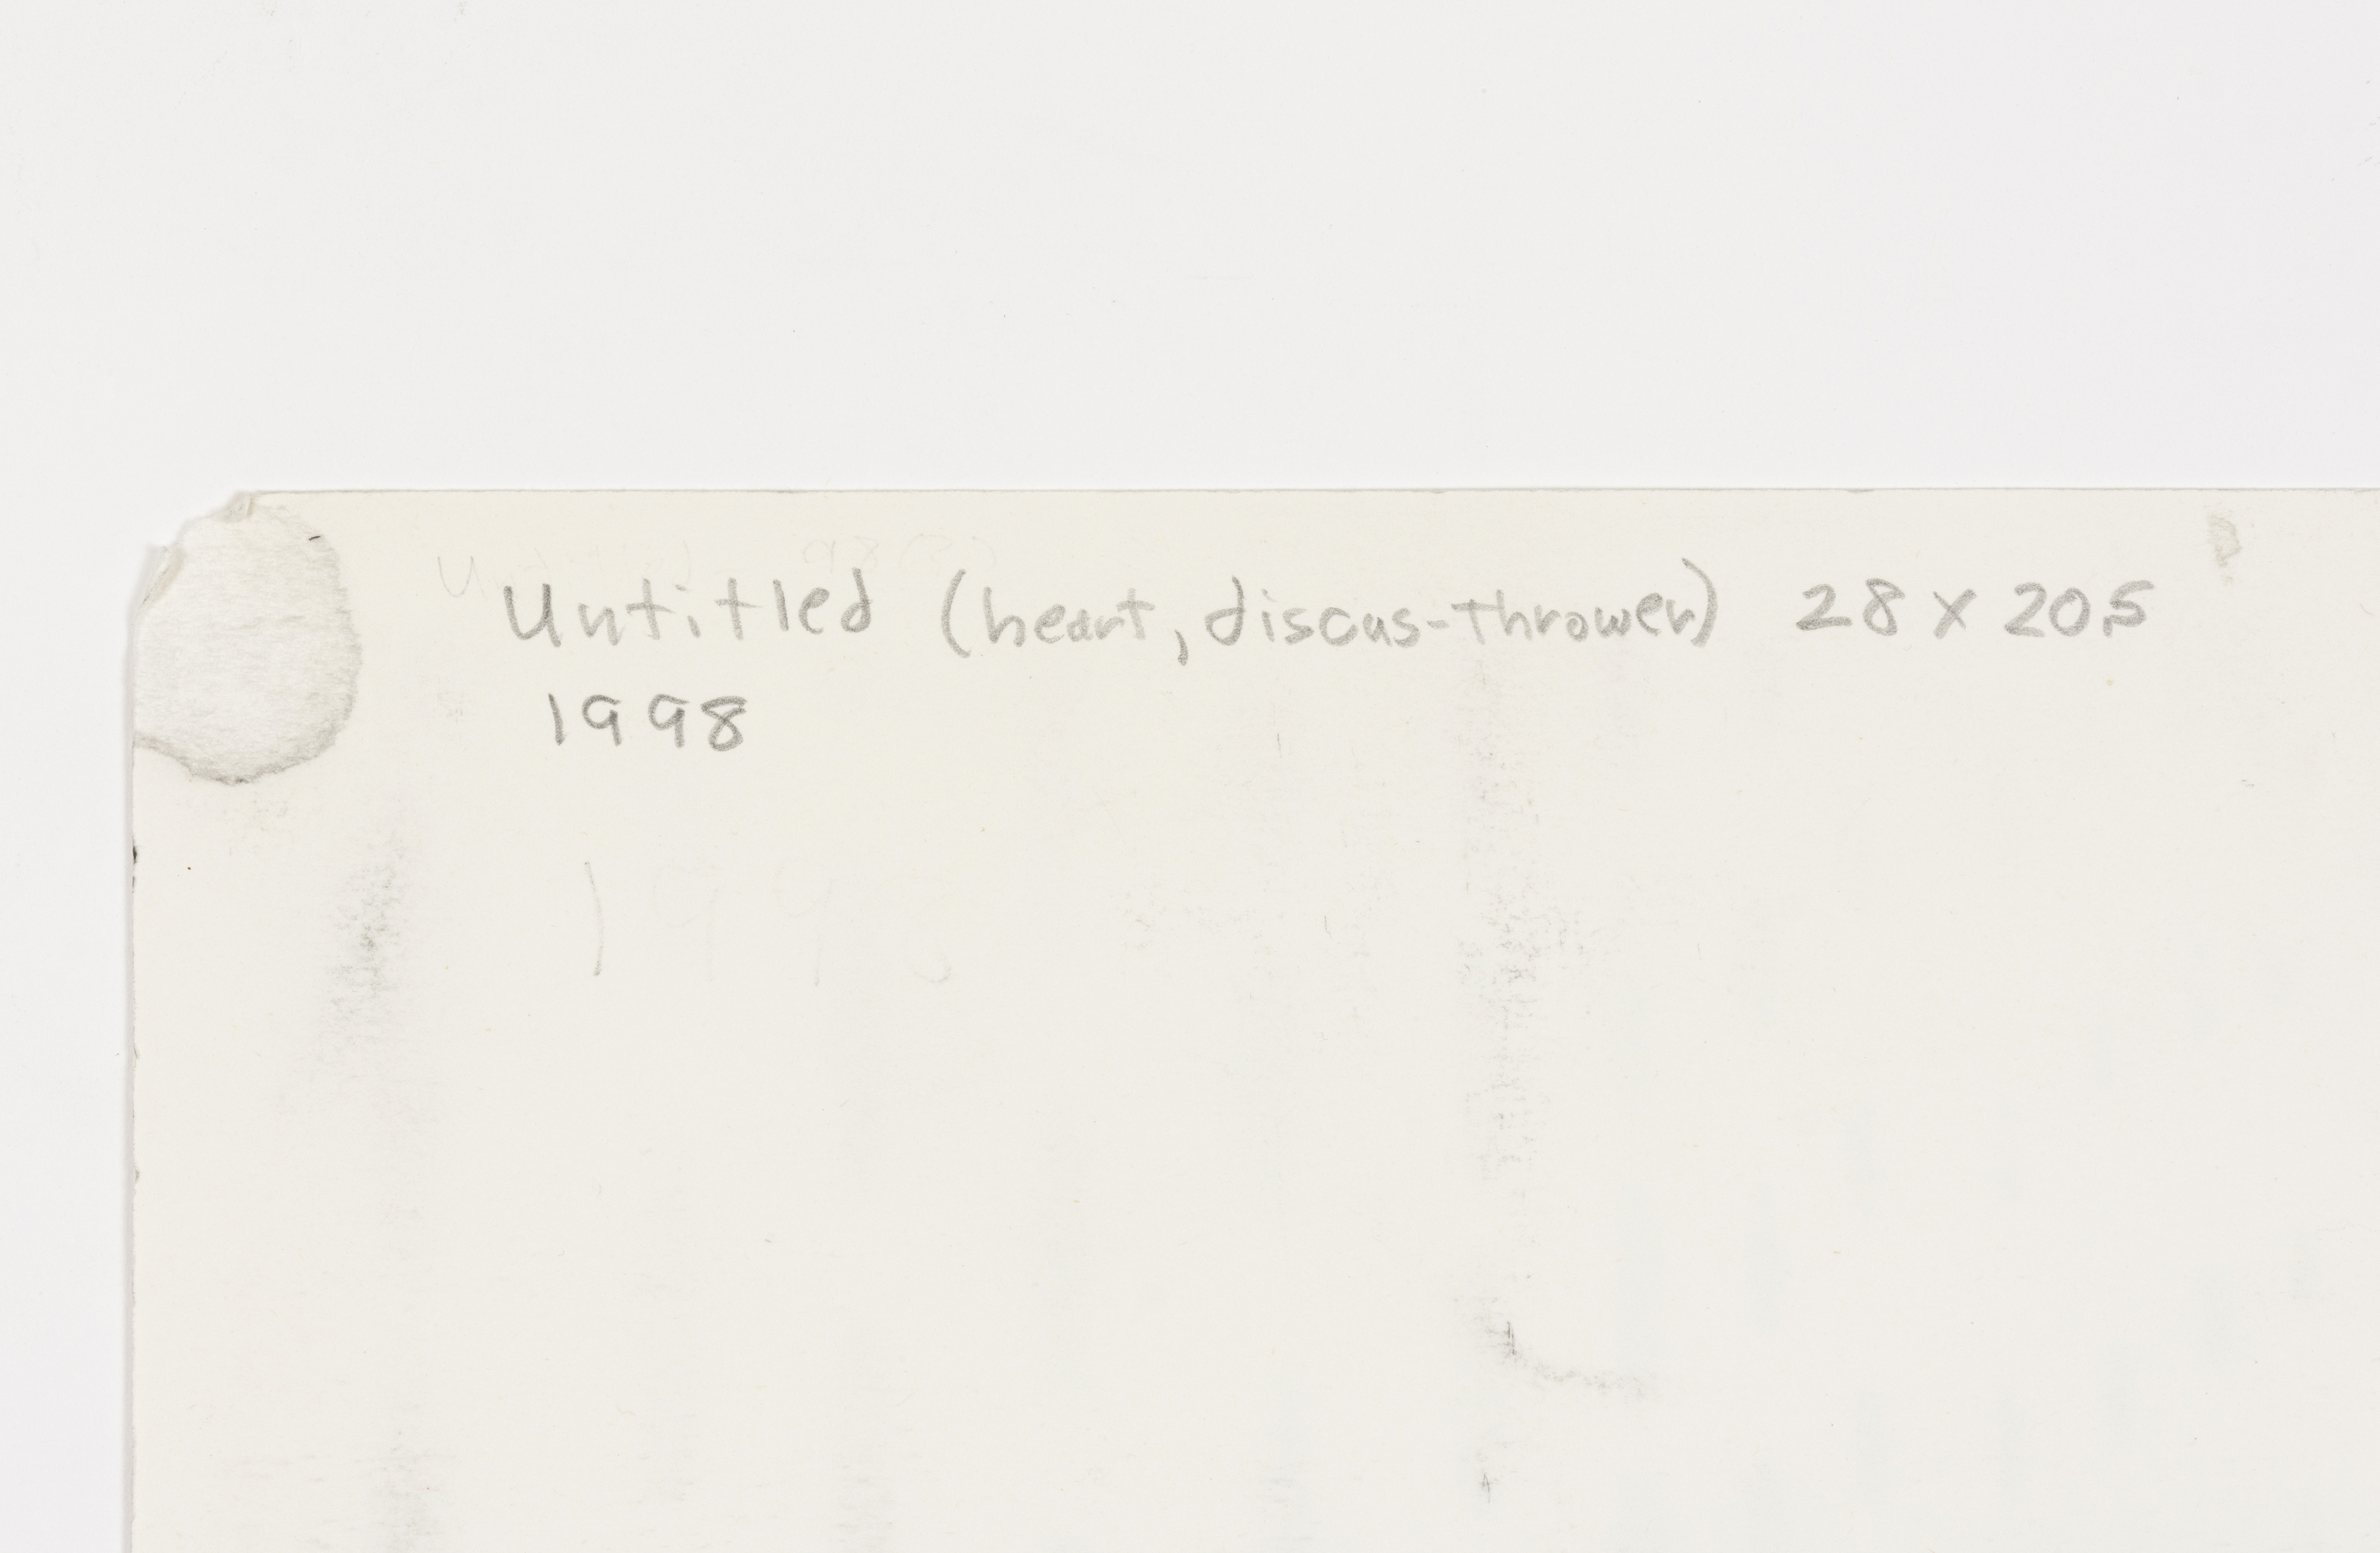 Untitled (heart, discus-thrower) 28 x 20.5
1998